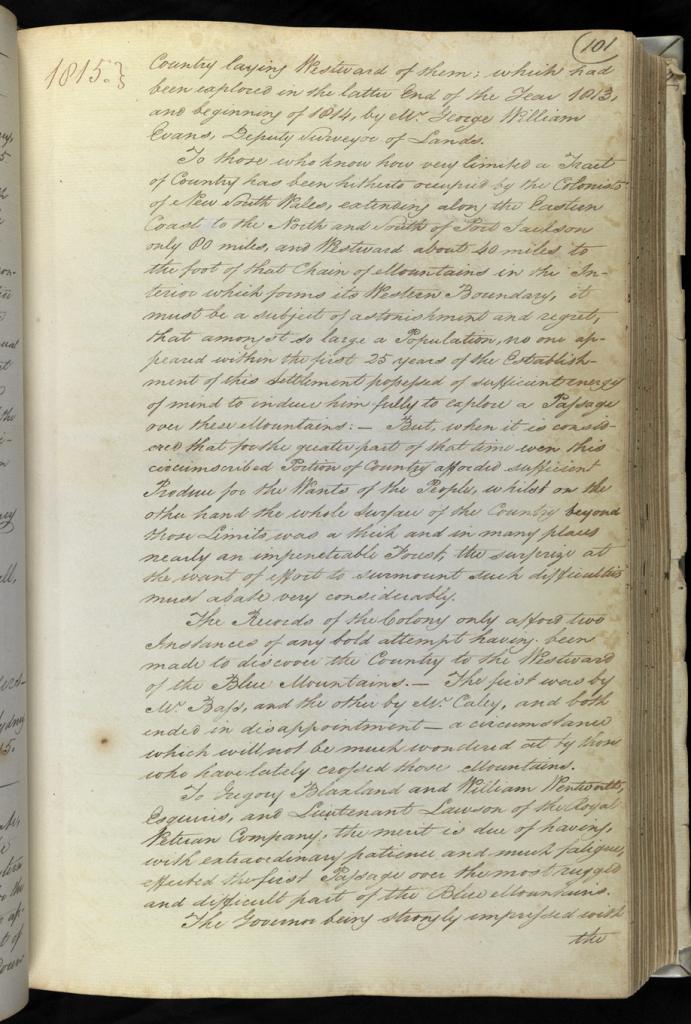 101
1815.}
Country laying Westward of them; which had
been explored in the latter End of the Year 1813,
and beginning of 1814, by Mr. George William
Evans, Deputy Surveyor of Lands.
To those who know how very limited a Tract
of Country has been hitherto occupied by the Colonists
of New South Wales, extending along the Eastern
Coast to the North and South of Port Jackson
only 80 miles, and Westward about 40 miles to
the foot of that Chain of Mountains in the In-
terior which forms its Western Boundary, it
must be a subject of astonishment and regret,
that amongst so large a Population, no one ap-
peared within the first 25 years of the Establish-
ment of this Settlement possessed of sufficient energy
of mind to induce him fully to explore a Passage
over these Mountains: — But, when it is consid-
ered that for the greater part of that time even this
circumscribed Portion of Country afforded sufficient
Produce for the Wants of the People, whilst on the
other hand the whole Surface of the Country beyond
those Limits was a thick and in many places
nearly an impenetrable Forest, the surprize at
the want of effort to surmount such difficulties
must abate very considerably.
The Records of the Colony only afford two
Instances of any bold attempt having been
made to discover the Country to the Westward
of the Blue Mountains. — The first was by
Mr. Bass, and the other by Mr. Caley, and both
ended in disappointment — a circumstance
which will not be much wondered at by those
who have lately crossed those Mountains.
To Gregory Blaxland and William Wentworth,
Esquires, and Lieutenant Lawson of the Royal
Veteran Company, the merit is due of having,
with extraordinary patience and much fatigue,
effected the first Passage over the most rugged
and difficult part of the Blue Mountains.
The Governor being strongly impressed with
the